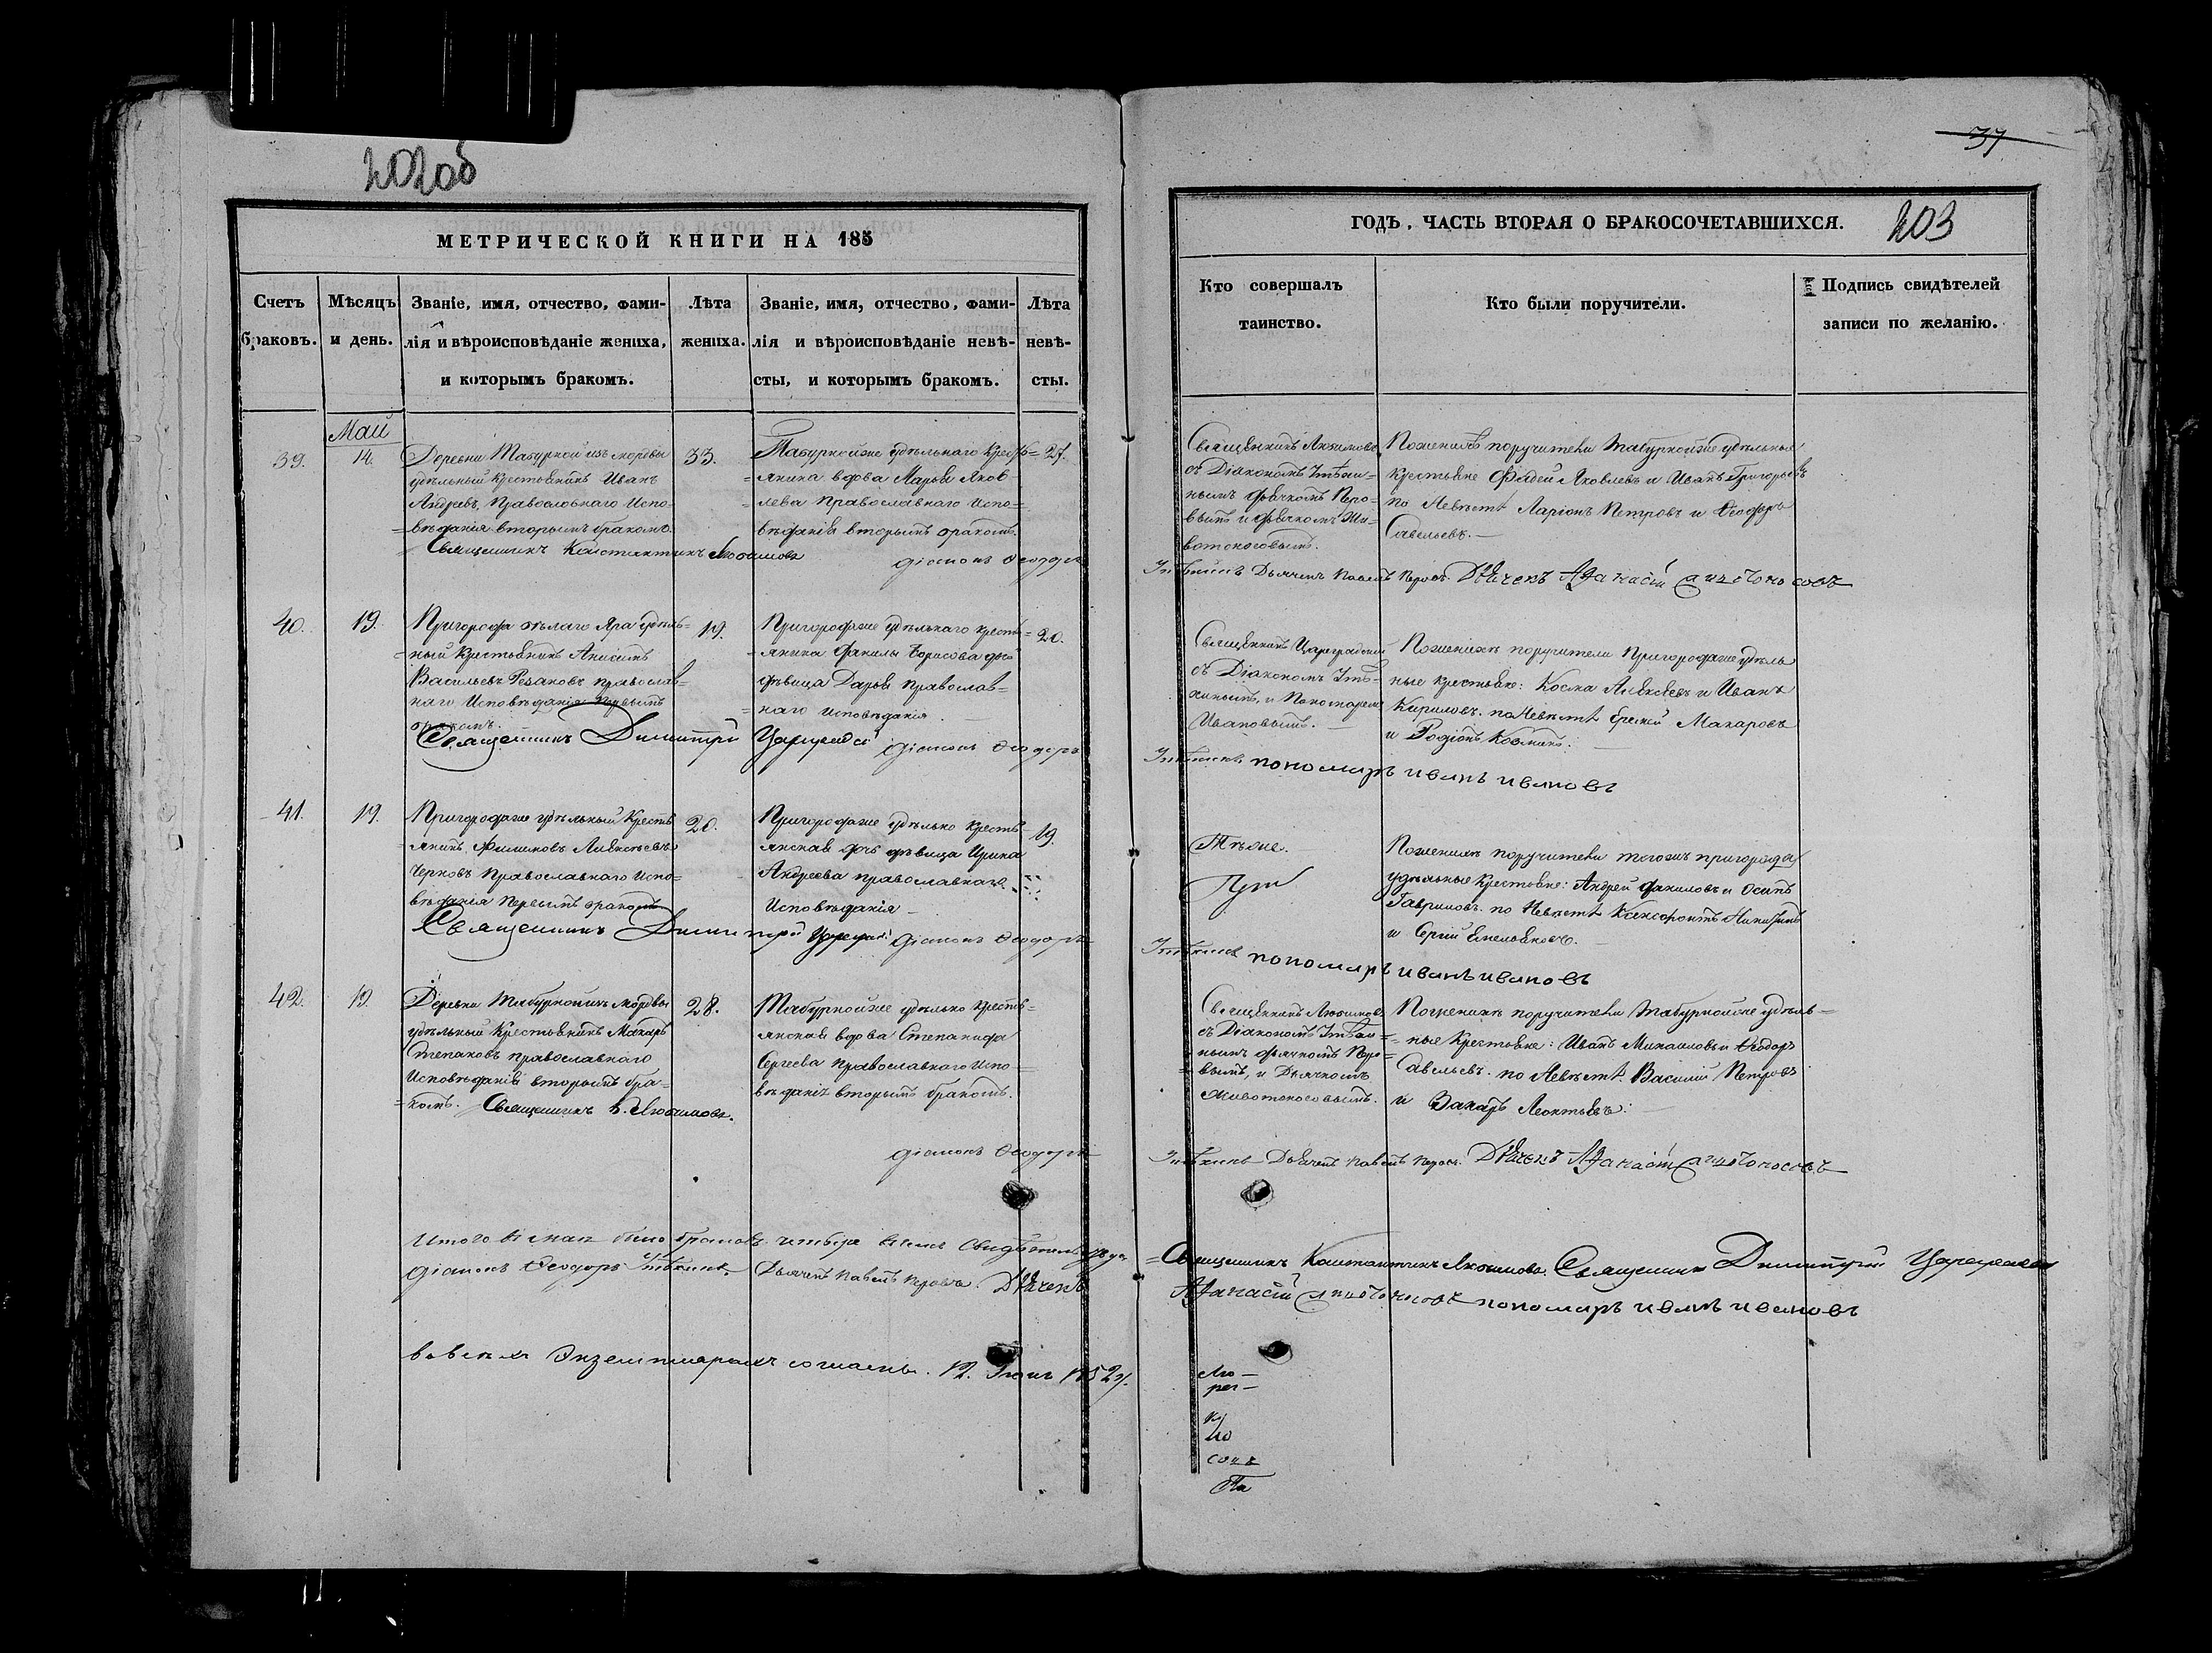 202об
МЕТРИЧЕСКОЙ КНИГИ НА 185
Счетъ браковъ.
Мѣсяцъ и день.
Званіе, имя, отчество, фами-
лія и вѣроисповѣданіе жениха,
и которымъ бракомъ.
Лѣта
жениха.
Званіе, имя, отчество, фами-
лія и вѣроисповѣданіе невѣ-
сты, и которымъ бракомъ.
Лѣта
невѣ-
сты.
Май
39.
14.
Деревни Табурной изъ мордвы
удѣльный крестьянинъ Иванъ
Андреевъ, Православнаго Испо-
вѣданія вторымъ бракомъ.
33.
Табурнойже удѣльнаго Кресть-
янина вдова Марья Яков-
лева Православнаго Испо-
вѣданія вторымъ бракомъ.
27.
Священникъ Константинъ Любимовъ
діаконъ Ѳеодоръ
40.
19.
Пригорода Бѣлаго Яра удѣль-
ный Крестьянинъ Анисимъ
Васильевъ Резаковъ православ-
наго Исповѣданія первымъ
бракомъ.
19.
Пригородаже удѣльнаго кресть-
янина Данилы Борисова дочь
дѣвица Дарья Православ-
наго исповѣданія.
20.
Священникъ Димитрій
діаконъ Ѳеодоръ
41.
19.
Пригородаже удѣльный Кресть-
янинъ Филимонъ Алексѣевъ
Черновъ Православнаго Испо-
вѣданія Первымъ бракомъ
20.
Пригородаже удѣльно кресть-
янская дочь дѣвица Ирина
Андреева православнаго
Исповѣданія
19.
Священникъ Димитрій
діаконъ Ѳеодоръ
42.
19.
Деревни Табурной изъ мордвы
удѣльный Крестьянинъ Макаръ
Степановъ православнаго
Исповѣданія вторымъ бра-
комъ.
28.
Табурнойже удѣльно кресть-
янская вдова Степанида
Сергеева Православнаго Испо-
вѣданія вторымъ бракомъ.
Священникъ К. Любимовъ.
діаконъ Ѳеодоръ
Итого в маѣ было браковъ четыре
діаконъ Ѳеодоръ Дьячекъ Павелъ Перовъ. Дьячекъ
экземплярахъ 12. Іюня 1852 г.
37
ГОДЪ, ЧАСТЬ ВТОРАЯ О БРАКОСОЧЕТАВШИХСЯ.
203
Кто совершалъ
таинство.
Кто были поручители.
Подпись свидѣтелей
записи по желанію.
Священникъ Любимовъ
съ Діакономъ
нымъ дьячкомъ Перо-
вымъ и дьячкомъ Жи-
вотоносовымъ.
Поженихѣ поручители Табурнойже удѣльные
крестьяне Фадей Яковлевъ и Иванъ Григорьевъ
по Невѣстѣ Ларіонъ Петровъ и Ѳеодоръ
Савельевъ.
Дьячекъ Павелъ Перовъ. Дьячекъ Аѳанасій
Священникъ Цареградскій
съ Діакономъ
и Пономаремъ
Ивановымъ.
Поженихѣ поручители Пригородаже удѣль
ные крестьяне: Косма Алексѣевъ и Иванъ
Кириловъ. по Невѣстѣ Еремей Макаровъ
и Родіонъ Козминъ.
пономарь иванъ ивановъ
Тѣже.
Поженихѣ поручители тогожъ пригорода
удѣльные Крестьяне: Андрей Даниловъ и Осипъ
Гавриловъ. по Невѣстѣ Ксенофонтъ Никитинъ
и Сергій Емельяновъ.
пономарь иванъ ивановъ
Священникъ Любимовъ
съ Діакономъ
нымъ дьячкомъ Перо-
вымъ, и Дьячкомъ
Животоносовымъ.
Поженихѣ поручители Табурнойже удѣль-
ные Крестьяне: Иванъ Михаиловъ и Ѳеодоръ
Савельевъ. по Невѣстѣ Василій Петровъ
и Захаръ Леонтьевъ.
Дьячекъ Павелъ Перовъ. Дьячекъ Аѳанасій
Священникъ Константинъ Любимовъ. Священникъ Димитрій
Аѳанасій пономарь иванъ ивановъ